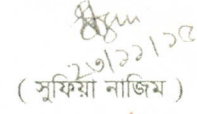 ২৩/১১/১৫
( সুফিয়া নাজিম )